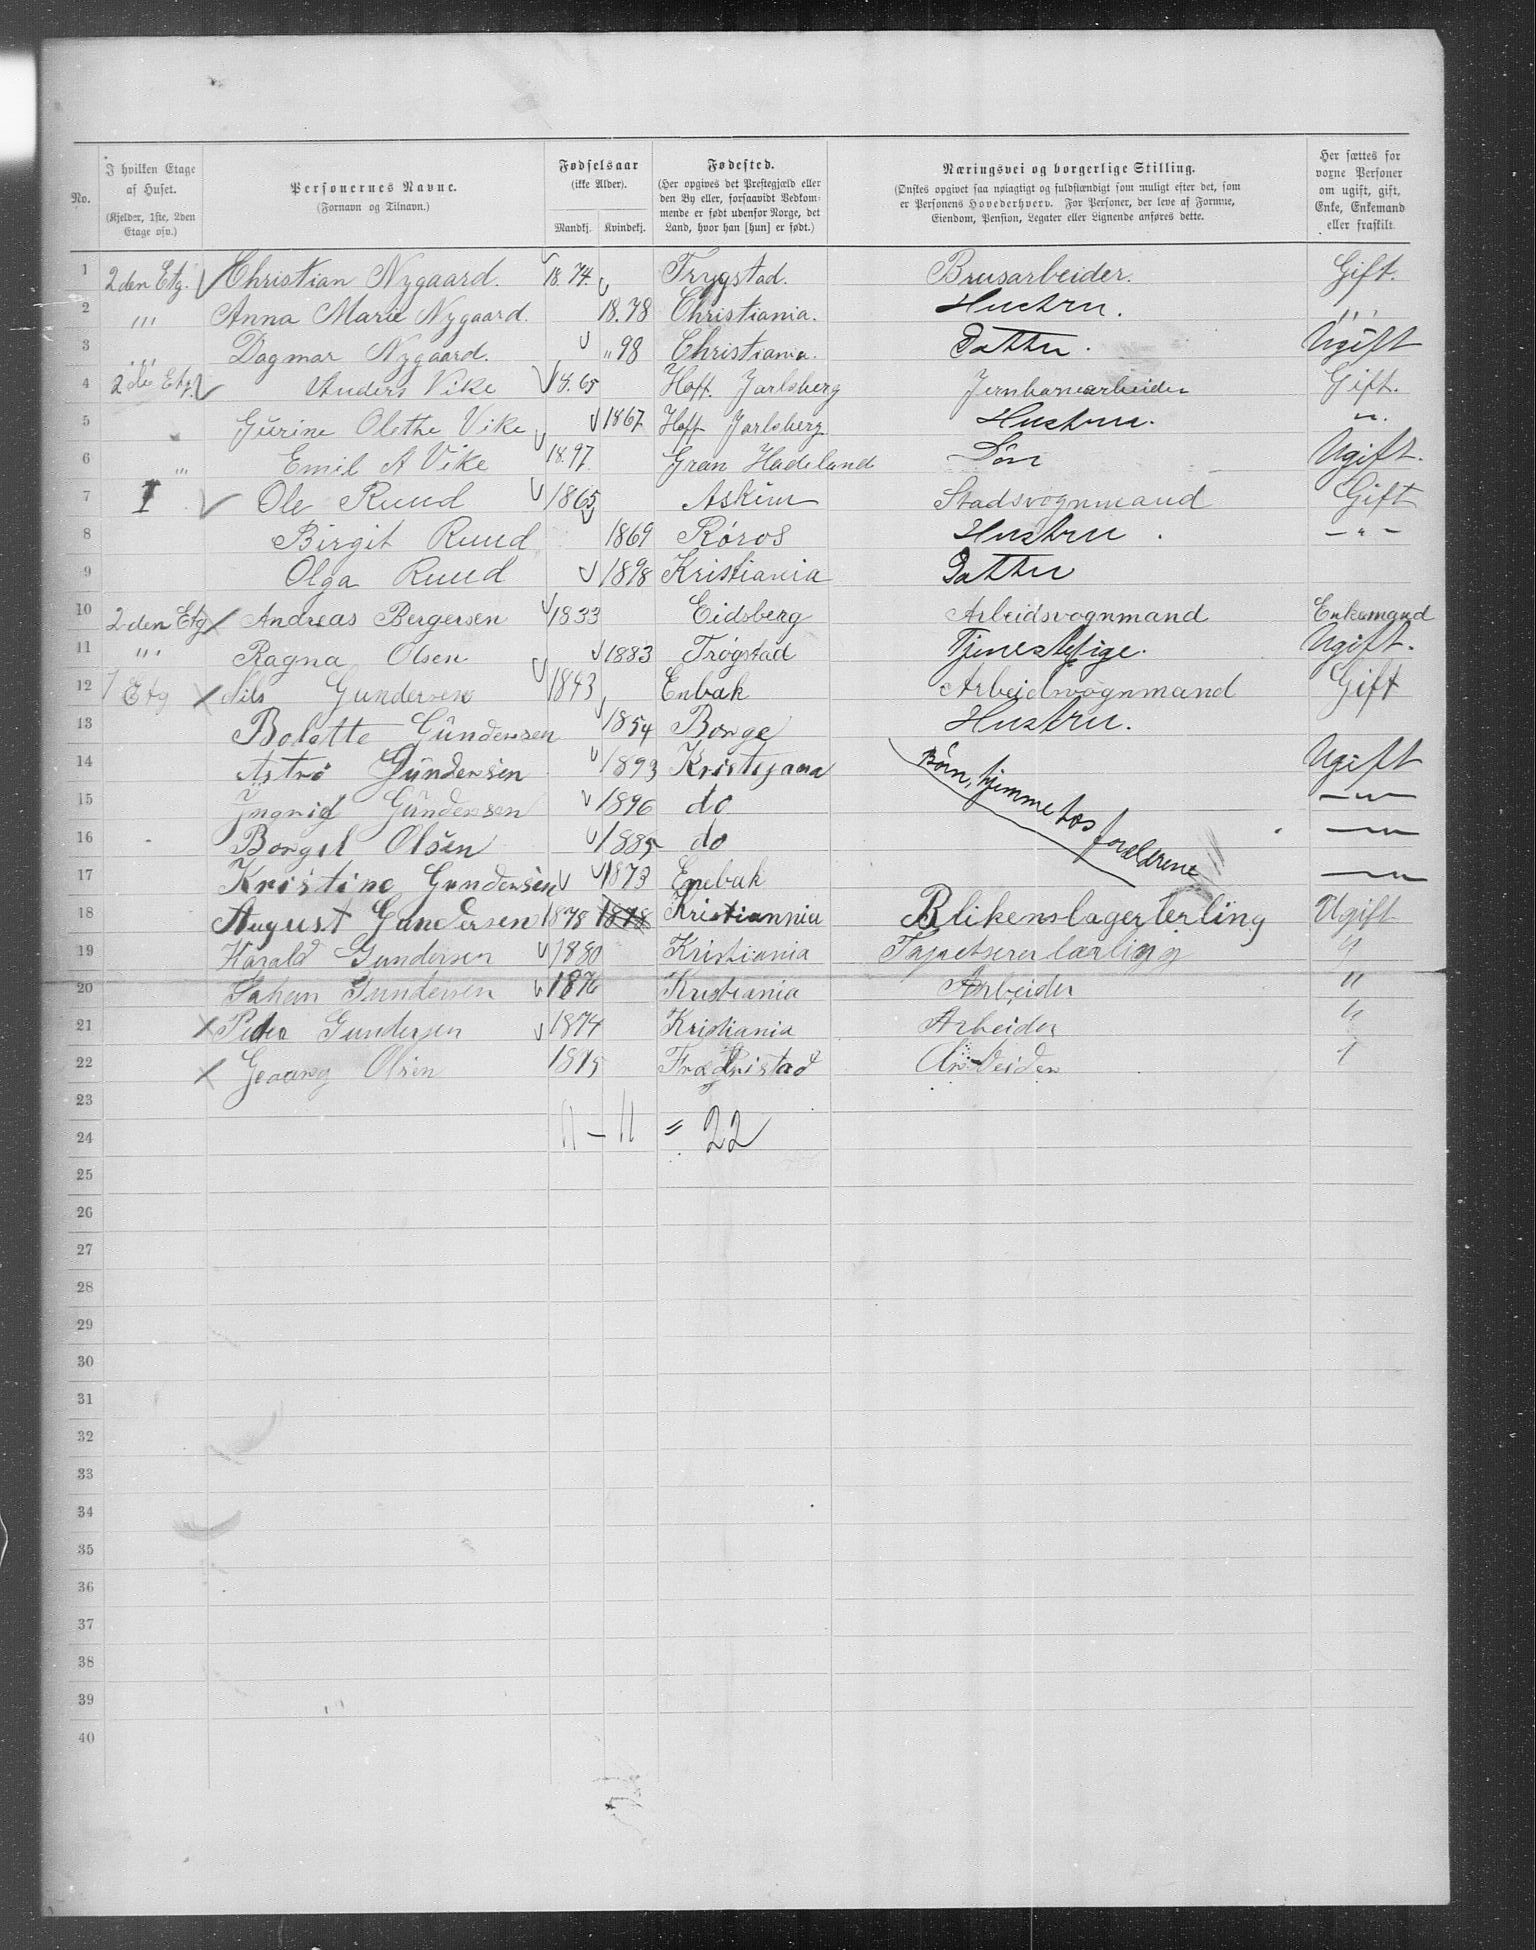 No. | I hvilken Etage af Huset. (Kjelder, 1ste, 2den Etage osv.) | Personernes Navne. (Fornavn og Tilnavn.) | Fødselsaar (ikke Alder). Mandkj. | Kvindekj. | Fødested. (Her opgives det Prestegjæld eller den By eller, forsaavidt Vedkommende er født udenfor Norge, det Land, hvor han [hun] er født.) | Næringsvei og borgerlige Stilling. (Ønskes opgivet saa nøiagtigt og fuldstændigt som muligt efter det, som er Personens Hovederhverv. For Personer, der leve af Formue, Eiendom, Pension, Legater eller Lignende anføres dette.) | Her sættes for voxne Personer om ugift, gift, Enke, Enkemand eller fraskilt.
1 2den Etg. Christian Nygaard. 18.74. Trygstad. Brusarbeider. Gift.
2 ''' Anna Marie Nygaard. 18.78 Christiania. Hustru. '''
3 ''' Dagmar Nygaard. " 98 Christiania. Datter. Ugift
4 2de Etg. Anders Vike 18.65 Hoff. Jarlsberg Jernbanearbeider Gift.
5 " Gurine Olethe Vike 1867 Hoff Jarlsberg Hustru. "
6 ''' Emil A Vike 18.97 Gran Hadeland Søn Ugift.
7 I Ole Ruud 1865 Askim Stadsvognmand Gift
8 Birgit Ruud 1869 Røros Hustru. - " -
9 Olga Ruud 1898 Kristiania Datter
10 2den Etg Andreas Bergersen 1833 Eidsberg Arbeidsvognmand Enkemand
11 ''' Ragna Olsen 1883 Trøgstad Tjenestepige. Ugift.
12 1 Etg Nils Gundersen 1843 Enbak Arbeidsvognmand Gift
13 Bolette Gündersen 1854 Borge Hustru.
14 Astri Gündersen 1893 Kristijana Børn, hjemme hos forældrene Ugift
15 Yngrid Gündersen 1896 do — " —
16 Borgil Olsen 1885 do — " —
17 Kristine Gundersen 1873 Enebak — " —
18 August Gundersen 1878 1878 Kristiannia Blikenslagerlerling Ugift
19 Harald Gundersen 1880 Kristiania Tapetsererlærling "
20 Johan Gundersen 1876 Kristiania Arbeider "
21 Peder Gundersen 1874 Kristiania Arbeider "
22 Geaarg Olsen 1875 Fredristad Arbeider "
23
24 11 – 11 = 22
25
26
27
28
29
30
31
32
33
34
35
36
37
38
39
40